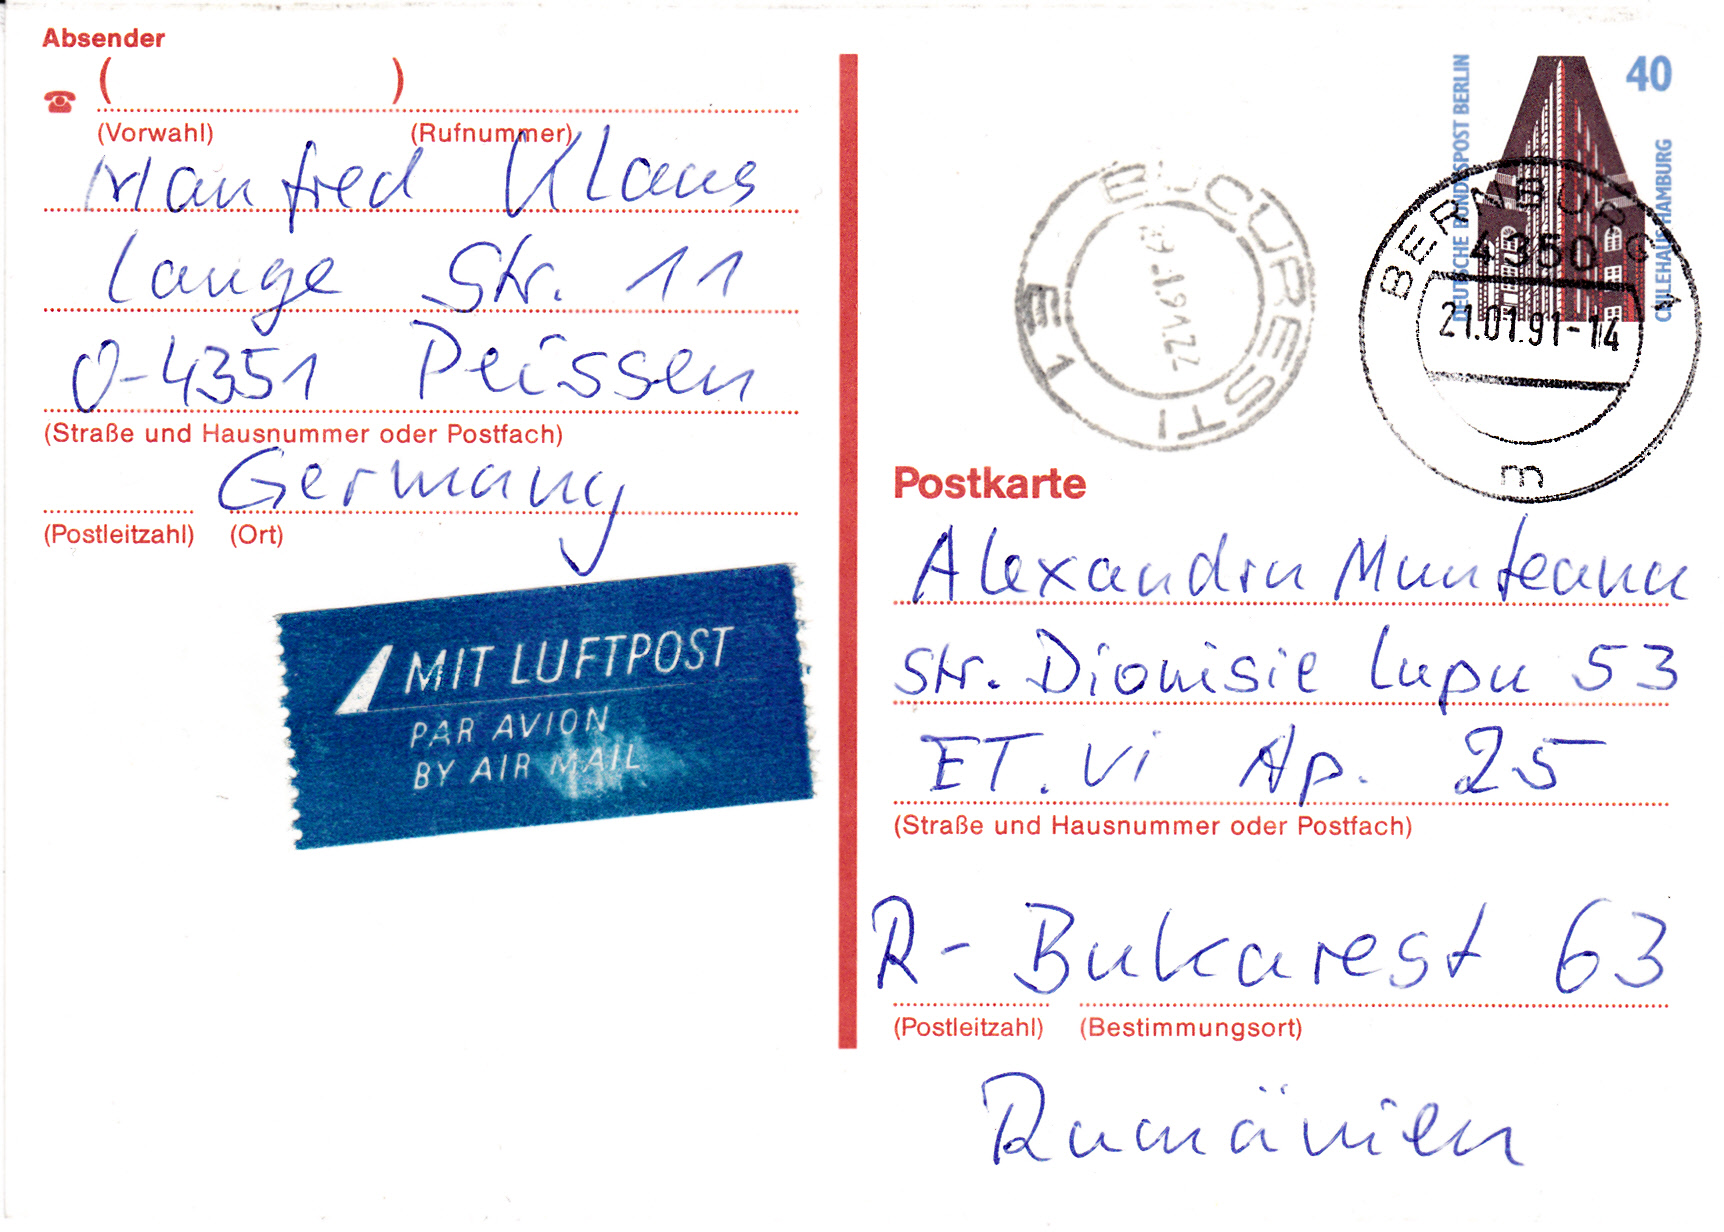 Absender
( )
(Vorwahl) (Rufnummer)
Manfred Klaus
Lange Str. 11
O-4351 Peissen
(Straße und Hausnummer oder Postfach)
Germany
(Postleitzahl) (Ort)
MIT LUFTPOST
PAR AVION
BY AIR MAIL
DEUTSCHE BUNDESPOST BERLIN
40
CHILEHAUS HAMBURG
BUCURESTI
E 1
BERNBURG 1
4350
21.01.91-14
m
Postkarte
Alexandru Munteanu
Str. Dionisie Lupu 53
ET. VI Ap. 25
(Straße und Hausnummer oder Postfach)
R- Bukarest 63
(Postleitzahl) (Bestimmungsort)
Rumänien